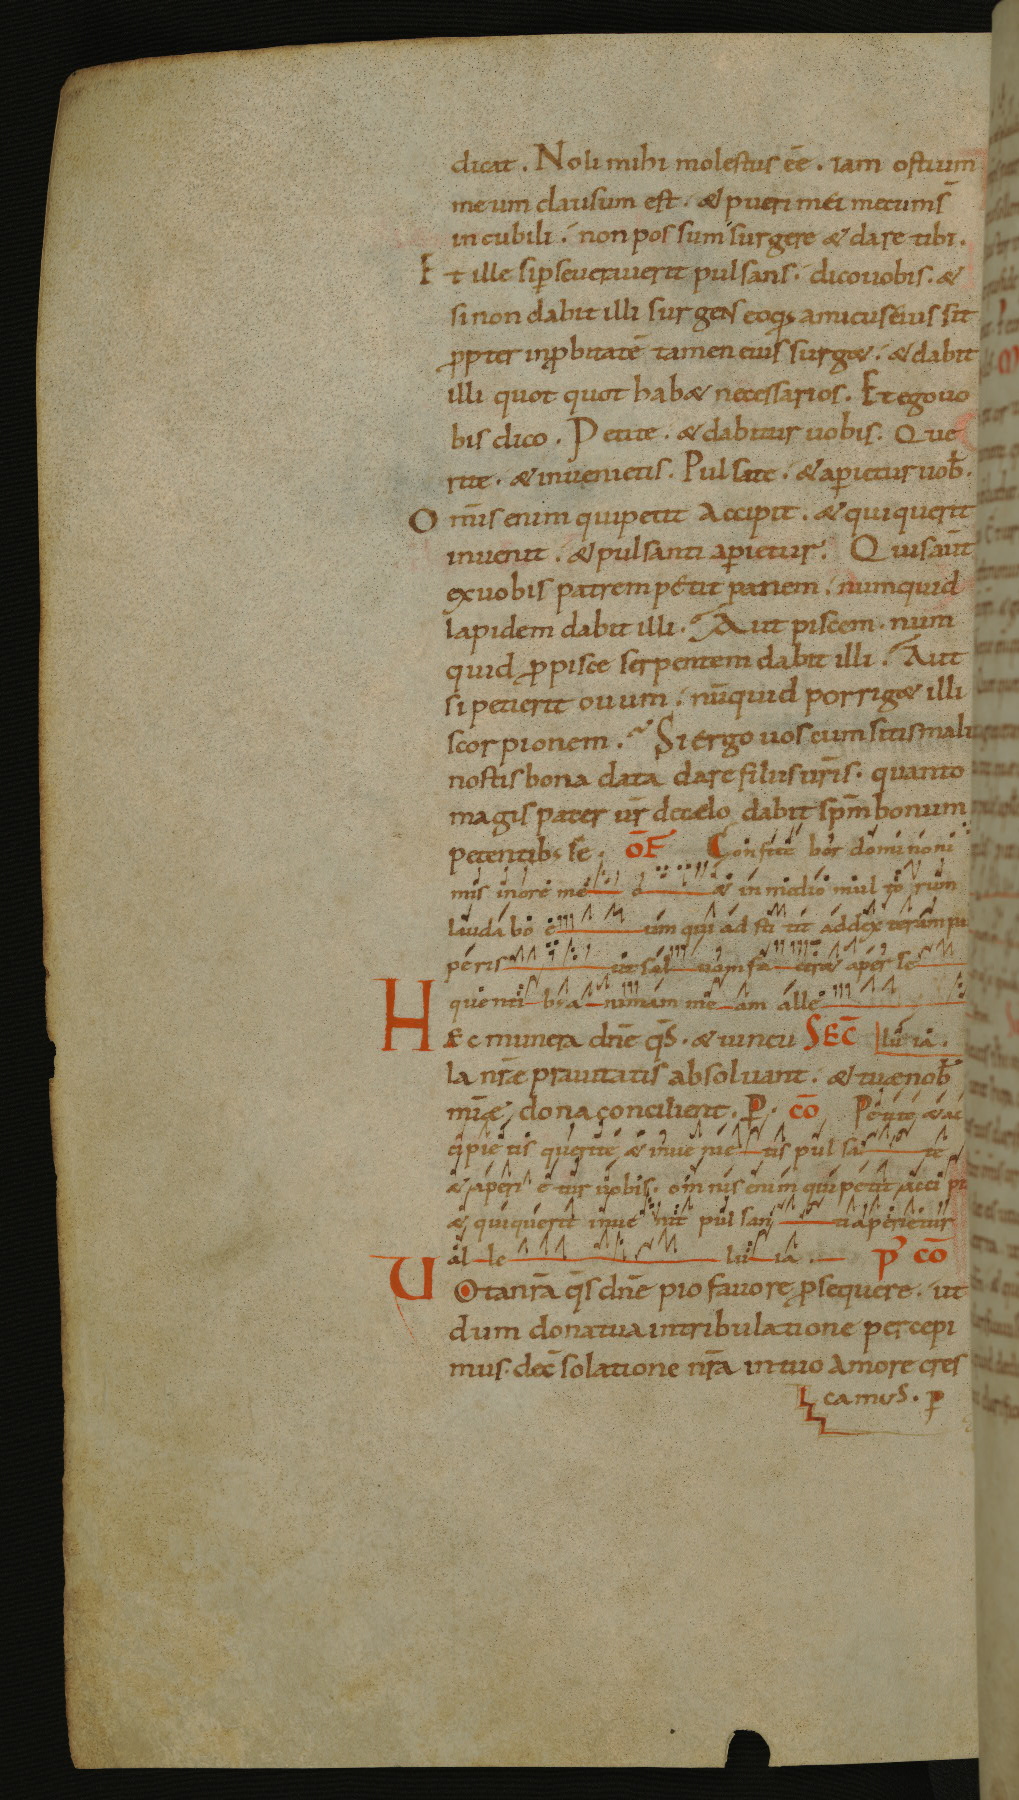 dicat. Noli mihi molestus eē. iam ostium
meum clausum est. & pueri mei mecum s̄
in cubili. non possum surgere & dare tibi.
Et ille si p̱seueraverit pulsans. dico vobis. &
si non dabit illi surgens eo qđ amicus eius sit
ꝓpter inꝓbitatē tamen eius surg&. & dabit
illi quotquot hab& necessarios. Et ego vo
bis dico. Petite. & dabitur vobis. Que
rite. & invenietis. Pulsate. & aperietur vob̄.
Om̄is enim qui petit accipit. & qui querit
invenit. & pulsanti aperietur. Quis aūt
ex vobis patrem petit panem. numquid
lapidem dabit illi. Aut piscem. num
quid ꝓ pisce serpentem dabit illi. Aut
si petierit ovum. nūquid porrig& illi
scorpionem. Si ergo vos cum sitis mali
nostis bona data dare filiis ūris. quanto
magis pater ūr de celo dabit sp̄m bonum
petentib; se. OF̄ Confitebor domino ni
mis in ore me o & in medio mul to rum
laudabo e um qui adstitit ad dexteram pau
peris ut sal vam fa cer& a per se
quenti b; a nimam me am alle
Hec munera dn̄e q̄s. & vincu SEC̄ luia.
la nr̄æ pravitatis absolvant. & tuæ nob̄
mīæ dona concilient. P̱. CŌ Petite & ac
cipietis querite & inve nie tis pulsa te
& aperi e tur vobis. omnis enim qui petit accipit
& qui querit inve nit pulsan ti aperietur
al le lu ia. P̄ CŌ
Vota nr̄a q̄s dn̄e pio favore ꝓsequere. ut
dum dona tua in tribulatione percepi
mus. de c̄solatione nr̄a in tuo amore cres
camus. p̱